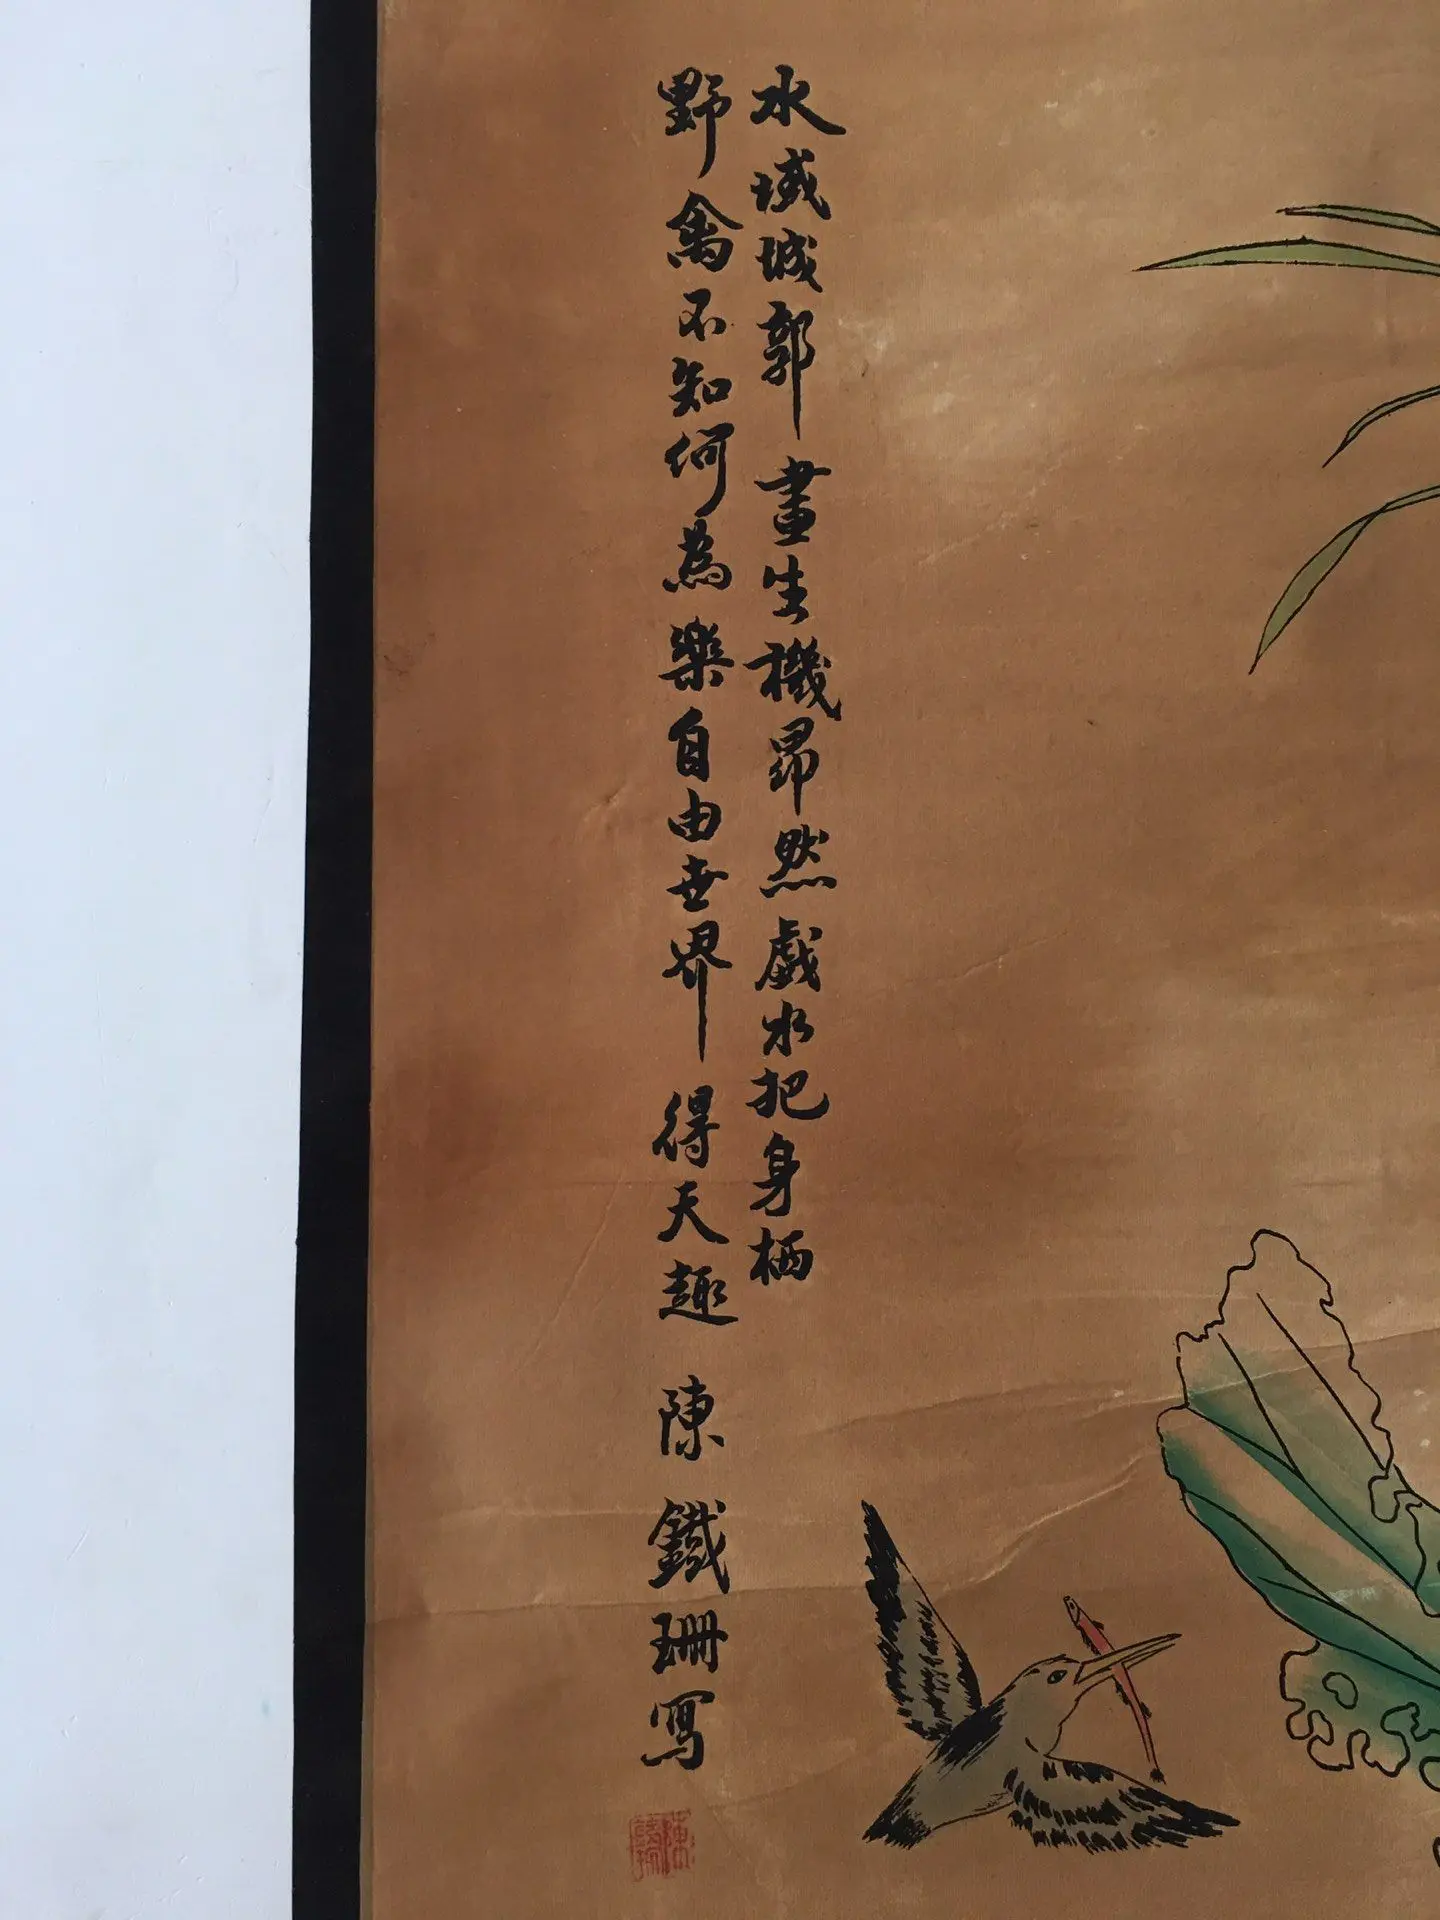 水域城郭畫生機昂然戲水把身栖
野禽不知何為樂自由世界得天趣 陳鐵珊寫